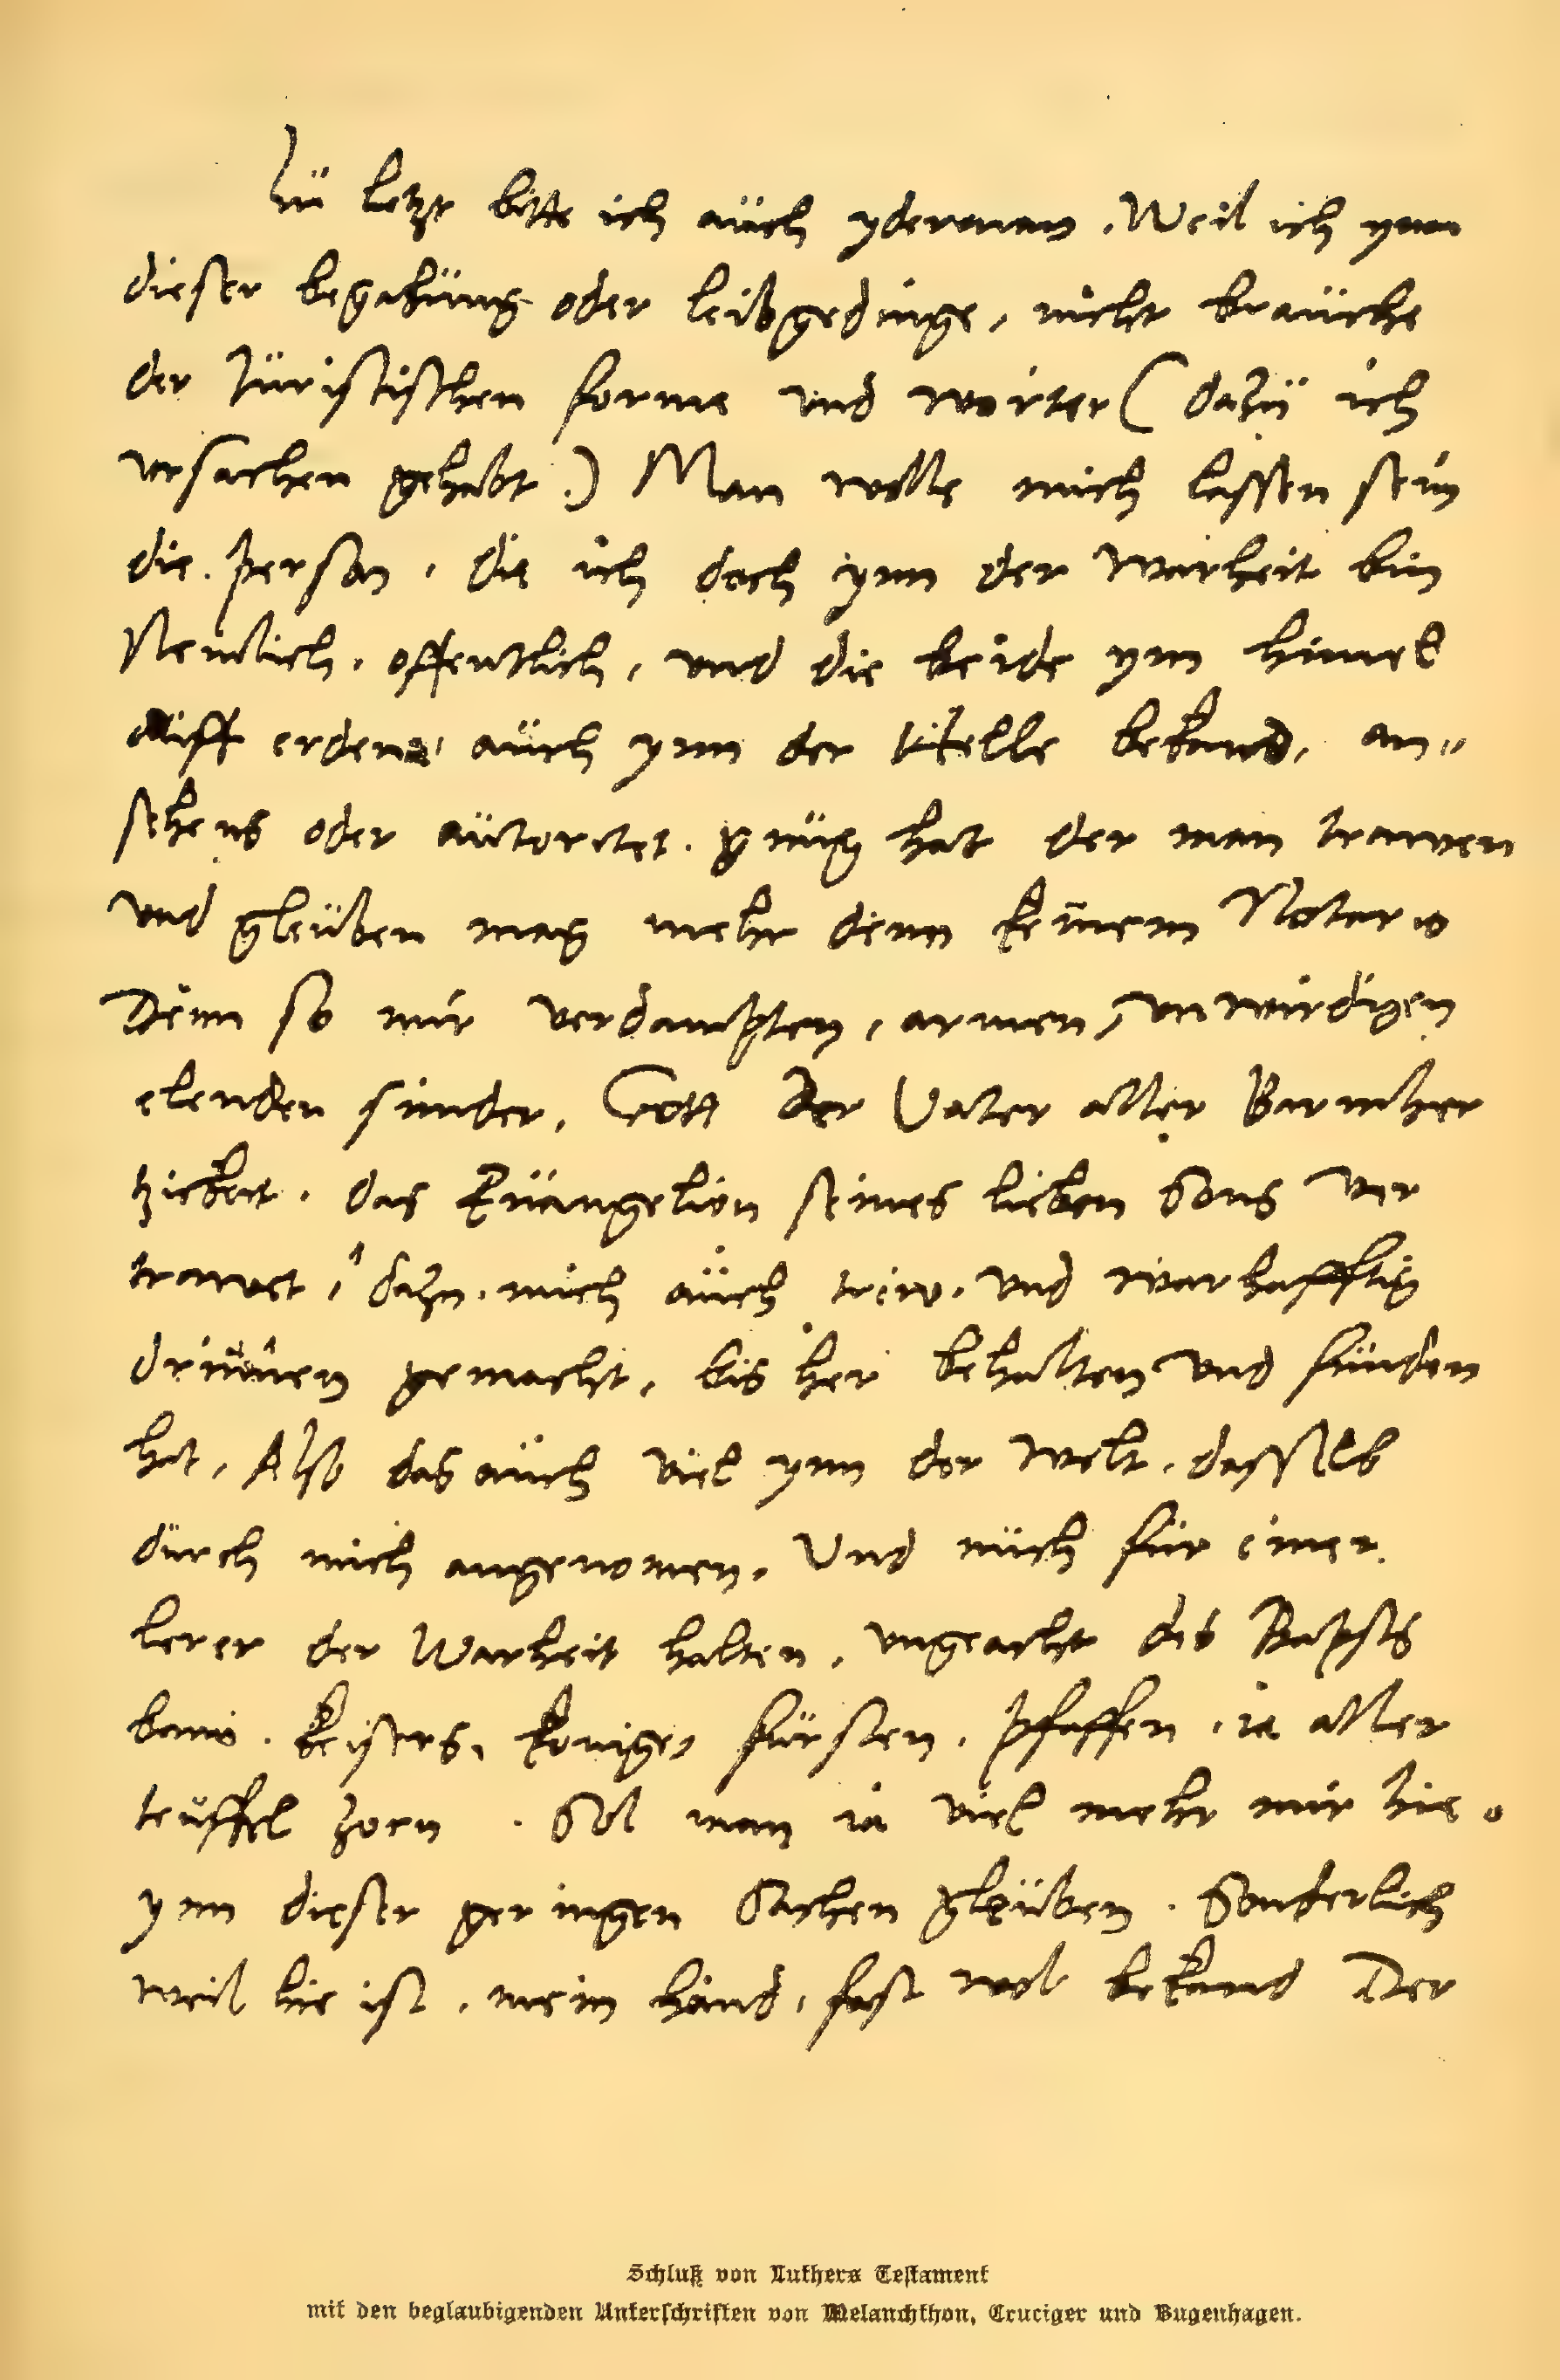 Zu letzt bitte ich auch yderman, Weil ich ynn
dieser begabung oder leibgedinge, nicht brauche
der Juristischen forme vnd worter (dazu ich
vrsachen gehabt) Man wolle mich lassen sein
die person, die ich doch ynn der warheit bin
Nemlich, offentlich, vnd die beide ym himel
auff erden, auch ynn der Helle bekand, an„
sehens oder autoritet gnug hat der man trawen
vnd gleuben mag mehr denn keinem Notario
Denn so mir verdampten, armen, vnwirdigen
elenden sunder, Gott der Vater aller Barmher
tzickeit, das Euangelion seines lieben Sons ver
trawet, dazu mich auch trew vnd warhafftig
drinnen gemacht, bis her behalten vnd funden
hat, Also das auch viel ynn der welt, dasselb
durch mich angenomen, Vnd mich fur einen
lerer der Warheit halten, vngeacht des Bapsts
bann, keisers, konige, fursten, pfaffen, ia aller
teuffel zorn. Sol man ia viel mehr mir hie
ynn dieser geringen Sachen gleuben. Sonderlich
weil hie ist, mein hand, fast wol bekand Der
Schluß von Luthers Testament
mit den beglaubigenden Unterschriften von Melanchthon, Cruciger und Bugenhagen.